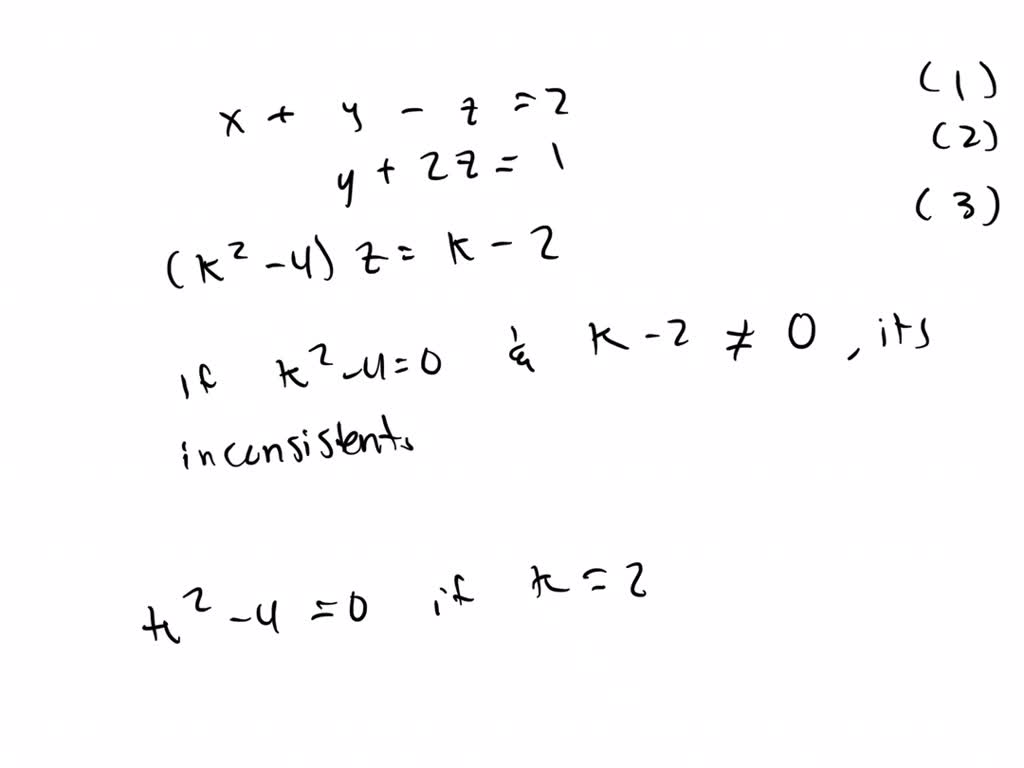 x + y - z = 2 (1)
y + 2z = 1 (2)
(k² - 4) z = k - 2 (3)
if k² - 4 = 0 & k - 2 ≠ 0, its
inconsistent.
k² - 4 = 0 if k = 2